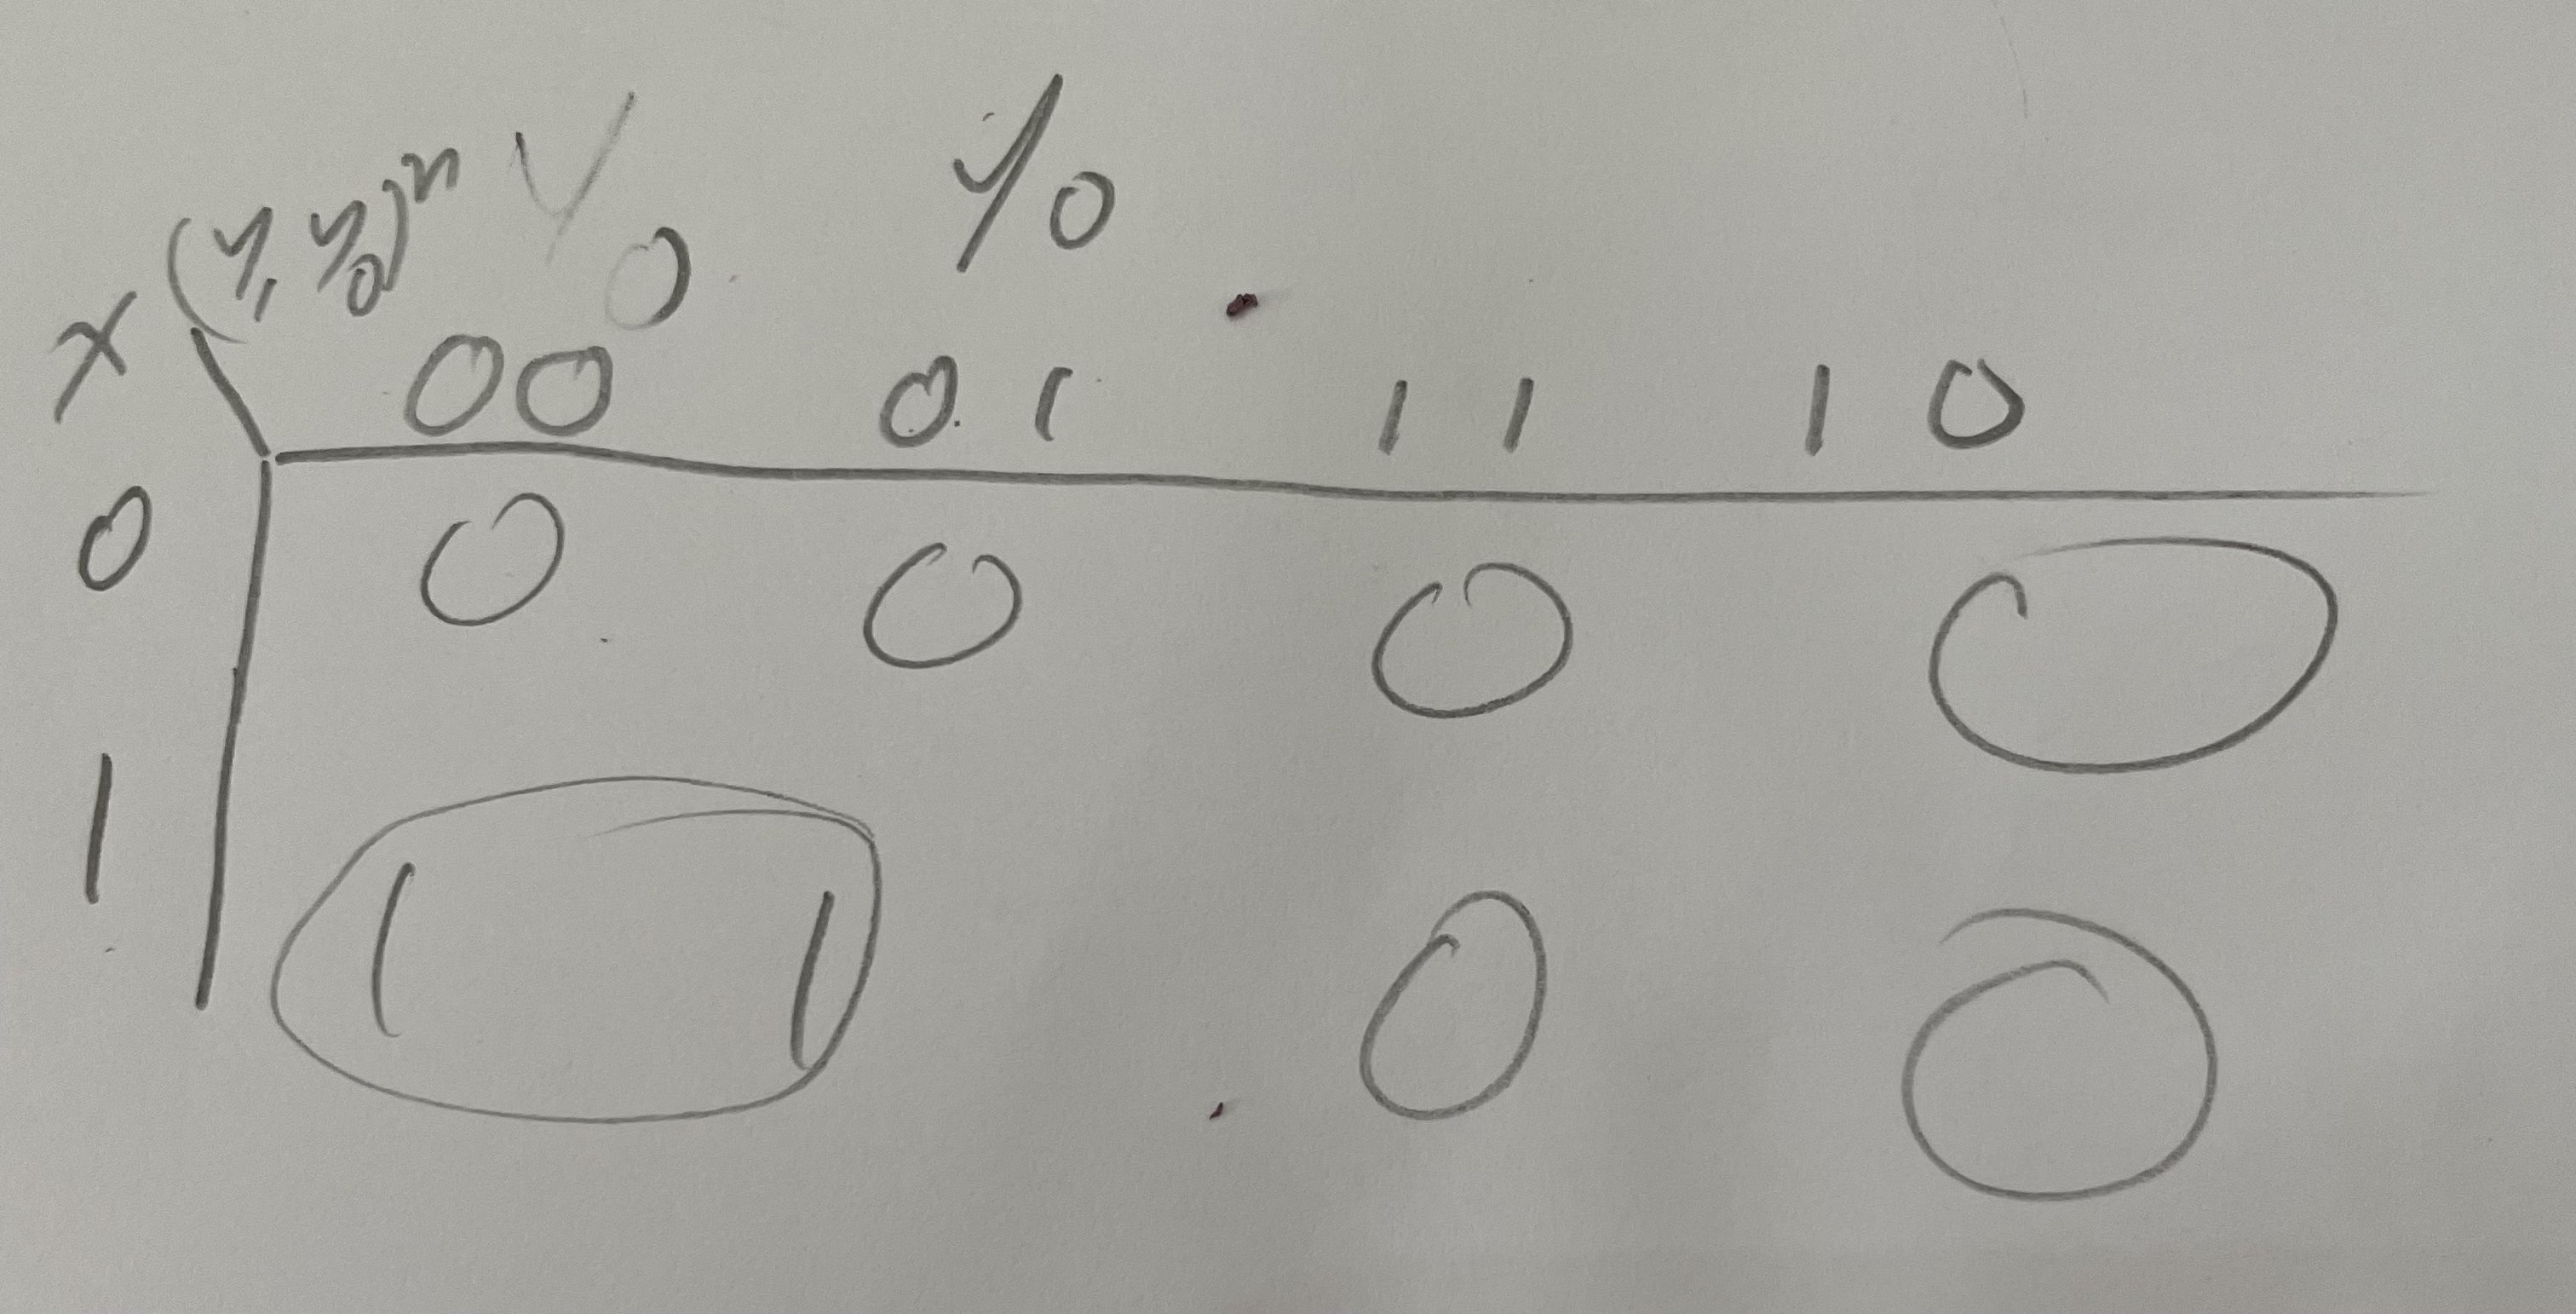 X (y₁ y₀)ⁿ y₀ y₀
00 01 11 10
0 0 0 0 0
1 1 1 0 0